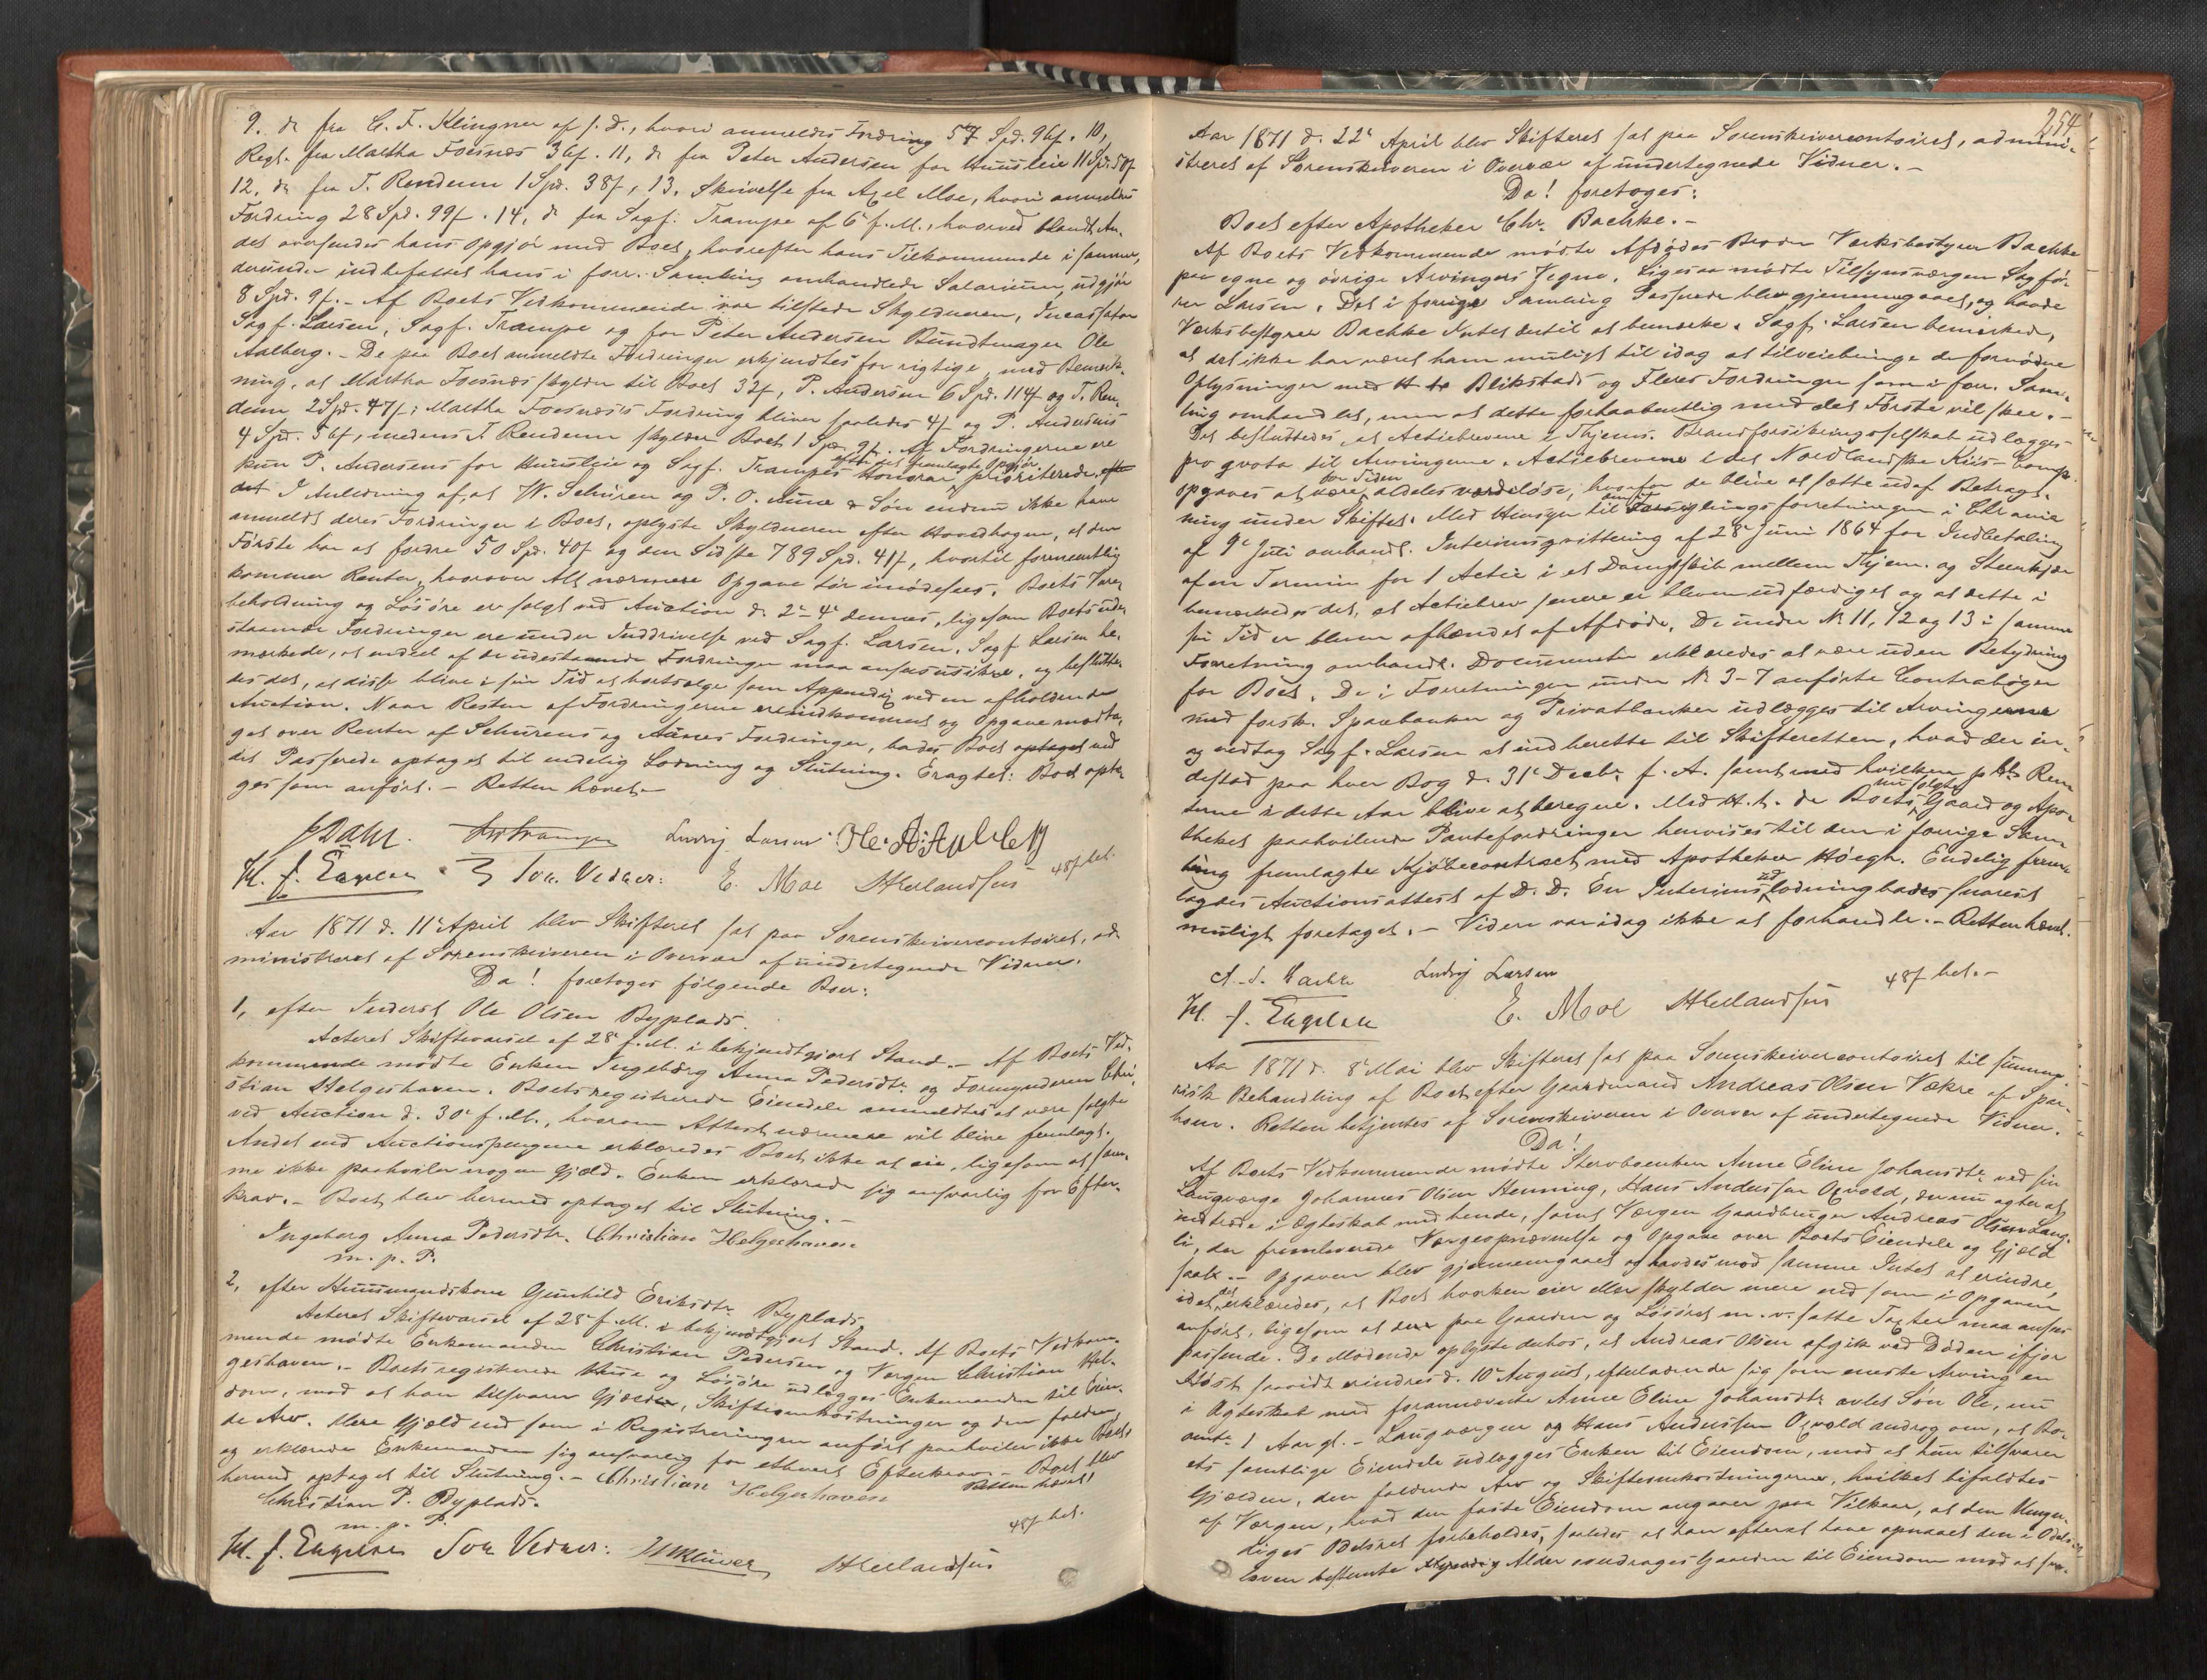 9. do fra C. F. Klingner af s. D., hvori anmeldes Fordring 57 Spd. 96ſ. 10,
Regn. fra Martha Foesnæs 36ſ. 11, do fra Peter Andersen for Huusleie 11 Spd. 50ſ
12, do fra T. Rendum 1 Spd. 38ſ, 13, Skrivelse fra Axel Moe, hvori anmeldes
Fordring 28 Spd. 99ſ. 14, do fra Sagf. Trampe af 6te f. M., hvorved blandt An-
det oversendes hans Opgjør med Boet, hvorefter hans Tilkommende i samme,
derunder indbefattet hans i forr. Samling omhandlede Salarium, udgjør
8 Spd. 9ſ. - Af Boets Vedkommende var tilstede Skyldneren, Incassator
Sagf. Larsen, Sagf. Trampe og for Peter Andersen Bundtmager Ole
Aalberg. - De paa Boet anmeldte Fordringer erkjendtes for rigtige, med Bemærk-
ning, at Martha Foesnæs skylder til Boet 32ſ, P. Andersen 6 Spd. 114ſ og T. Ren-
dum 2 Spd. 47ſ; Martha Foesnæs's Fordring bliver saaledes 4ſ og P. Andersens
4 Spd. 56ſ, medens T. Rendum skylder Boet 1 Spd. 9ſ. Af Fordringerne ere
kun P. Andersens for Huusleie og Sagf. Trampes Honorar efter det fremlagte Opgjør prioriterede, efter
det I Anledning af, at W. Schüren og P. O. Aune & Søn endnu ikke have
anmeldt deres Fordringer i Boet, oplyste Skyldneren efter Hovedbogen, at den
Første har at fordre 50 Spd. 40ſ og den Sidste 789 Spd. 41ſ, hvortil formentlig
kommer Renter, hvorover Alt nærmere Opgave bør imødesees. Boets Vare-
beholdning og Løsøre er solgt ved Auction d. 2de-4de dennes, ligesom Boets ude-
staaende Fordringer ere under Inddrivelse ved Sagf. Larsen. Sagf Larsen be-
mærkede, at endeel af de udestaaende Fordringer maa ansees usikre, og beslutte-
des det, at disse blive i sin Tid at bortsælge som Appendix ved en afholdende
Auction. Naar Resten af Fordringerne ere indkommet og Opgave modta-
get over Renter af Schürens og Aunes Fordringer, bades Boet optaget ved
det Passerede optaget til endelig Lodning og Slutning. Eragtet: Boet opta-
ges som anført. - Retten hævet. -
J Dahl. Trampe Ludvig Larsen Ole A: Aalberg
M. f. Engelsen Som Vidner: E. Moe Hellandsjus 48ſ bet.
Aar 1871 d. 11te April blev Skifteret sat paa Sorenskrivercontoiret, ad-
ministreret af Sorenskriveren i Overvær af undertegnede Vidner.
Da! foretages følgende Boer:
1, efter Inderst Ole Olsen Byplads.
Acteret Skiftevarsel af 28de f. M. i bekjendtgjort Stand. - Af Boets Ved-
kommende mødte Enken Ingeborg Anna Pedersdtr. og Formynderen Chri-
stian Helgeshaven. Boets registrerede Eiendele anmeldtes at være solgte
ved Auction d. 30te f. M., hvorom Attest nærmere vil blive fremlagt.
Andet end Auctionspengene erklæredes Boet ikke at eie, ligesom at sam-
me ikke paahviler nogen Gjæld. Enken erklærede sig ansvarlig for Efter-
krav. - Boet blev hermed optaget til Slutning. -
Ingeborg Anna Pedersdtr. Christian Helgeshaven
m. p. P.
2, efter Huusmandskone Gunhild Eriksdtr. Byplads.
Acteret Skiftevarsel af 28de f. M. i bekjendtgjort Stand. Af Boets Vedkom-
mende mødte Enkemanden Christian Pedersen og Værgen Christian Hel-
geshaven. - Boets registrerede Huse og Løsøre udlægges Enkemanden til Eien-
dom, mod at han tilsvarer Gjælden, Skifteomkostninger og den faldende
Arv. Mere Gjæld end som i Registreringen anført paahviler ikke Boet,
og erklærede Enkemanden sig ansvarlig for ethvert Efterkrav. - Boet blev
hermed optaget til Slutning. - Christian Helgeshaven Retten hævet!
Christian P. Byplads.
m. p. P.
M. f. Engelsen Som Vidner: Klüver Hellandsjus 48ſ bet.
254.
Aar 1871 d. 22de April blev Skifteret sat paa Sorenskrivercontoiret, admini-
streret af Sorenskriveren i Overvær af undertegnede Vidner. -
Da! foretoges:
Boet efter Apotheker Chr. Bachke. -
Af Boets Vedkommende mødte Afdødes Broder Værksbestyrer Bachke
paa egne og øvrige Arvingers Vegne. Ligesaa mødte Tilsynsværgen Sagfø-
rer Larsen. Det i forrige Samling Passerede blev gjennemgaaet, og havde
Værksbestyrer Bachke Intet dertil at bemærke. Sagf. Larsen bemærkede,
at det ikke har været ham muligt til idag at tilveiebringe de fornødne
Oplysninger med H. t. Blikstads og Fleres Fordringer som i forr. Sam-
ling omhandlet, men at dette forhaabentlig med det Første vil skee. -
Det besluttedes, at Actiebrevene i Thjems. Brandforsikringsselskab udlægges
pro qvota til Arvingerne. Actiebrevene i det Nordlandske Kiis-Comp.
opgaves at være for Tiden aldeles værdiløse, hvorfor de blive at sætte udaf Betragt-
ning under Skiftet. Med Hensyn til den forseglingsforretningen i Chrania
af 9de Juli omhandl. Interimsqvittering af 28de Juni 1864 for Indbetaling
af en Termin for 1 Actie i et Dampskib mellem Thjem. og Steenkjær
bemærkedes det, at Actiebrev senere er bleven udfærdiget og at dette i
sin Tid er bleven afhændet af Afdøde. De under No 11, 12 og 13 i samme
Forretning omhandl. Documenter erklæredes at være uden Betydning
for Boet. De i Forretningen under No 3-7 anførte Contrabøger
med forsk. Sparebanker og Privatbanker udlægges til Arvingerne
og vedtog Sagf. Larsen at indberette til Skifteretten, hvad der in-
destod paa hver Bog d. 31te Decbr. f. A. samt med hvilken pCt. Ren-
terne i dette Aar blive at beregne. Med H. t. de Boets nu solgte Gaard og Apo-
theket paahvilende Pantefordringer henvises til den i forrige Sam-
ling fremlagte Kjøbecontract med Apotheker Høegh. Endelig frem-
lagdes Auctionsattest af D. D. En Interimsudlodning bades snarest
muligt foretaget. - Videre var idag ikke at forhandle. - Retten hævet.
A. S. Bachke Ludvig Larsen
M. f. Engelsen E. Moe Hellandsjus 48ſ bet. -
Aar 1871 d. 8de Mai blev Skifteret sat paa Sorenskrivercontoiret til summa-
risk Behandling af Boet efter Gaardmand Andreas Olsen Vækre af Spar-
boen. Retten betjentes af Sorenskriveren i Overvær af undertegnede Vidner.
Da!
Af Boets Vedkommende mødte Stervboenken Anne Eline Johansdtr. ved sin
Laugværge Johannes Olsen Henning, Hans Anderssen Oxvold, der nu agter at
indtræde i Ægteskab med hende, samt Værgen Gaardbruger Andreas Olsen Lang-
li, der fremleverede Værgeopnævnelse og Opgave over Boets Eiendele og Gjæld
saal. - Opgaven blev gjennemgaaet og havdes mod samme Intet at erindre,
idet det erklæredes, at Boet hverken eier eller skylder mere end som i Opgaven
anført, ligesom at den paa Gaarden og Løsøret m. v. satte Taxter maa ansees
passende. De Mødende oplyste derhos, at Andreas Olsen afgik ved Døden ifjor
Høst saavidt erindres d. 10de August, efterladende sig som eneste Arving en
i Ægteskab med forannævnte Anne Eline Johansdtr. avlet Søn Ole, nu
omtr. 1 Aar gl. - Laugværgen og Hans Anderssen Oxvold androg om, at Bo-
ets samtlige Eiendele udlægges Enken til Eiendom, mod at hun tilsvarer
Gjælden, den faldende Arv og Skifteomkostningerne, hvilket bifaldtes
af Værgen, hvad den faste Eiendom angaaer paa Vilkaar, at den Umyn-
diges Odelsret forbeholdes, saaledes at han efterat have opnaaet den i Odels-
loven bestemte Alder inddrages Gaarden til Eiendom mod at sva-